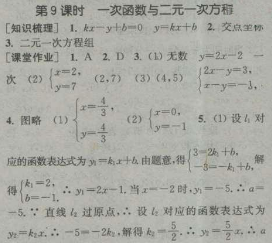 第9课时 一次函数与二元一次方程
[知识梳理] 1. kx－y＋b＝0 y＝kx＋b 2. 交点坐标
3. 二元一次方程组
[课堂作业] 1. A 2. D 3. (1) 无数 y＝2x－2 一
次 (2) {x＝2, y＝7 (2,7) (3) (4,5) {2x－y＝3, x－y＝－1,
4. 图略 (1) {x＝4/3, y＝4/3 (2) {x＝0, y＝－1 5. (1) 设 l₁ 对
应的函数表达式为 y₁＝k₁x＋b. 由题意,得 {3＝2k₁＋b, －3＝－k₁＋b. 解
得 {k₁＝2, b＝－1. ∴ y₁＝2x－1. 当 x＝－2 时, y₁＝－5. ∴ a＝
－5. ∵ 直线 l₂ 过原点, ∴ 设 l₂ 对应的函数表达式为
y₂＝k₂x. ∴ －5＝－2k₂, 解得 k₂＝5/2. ∴ y₂＝5/2 x. ∴ a